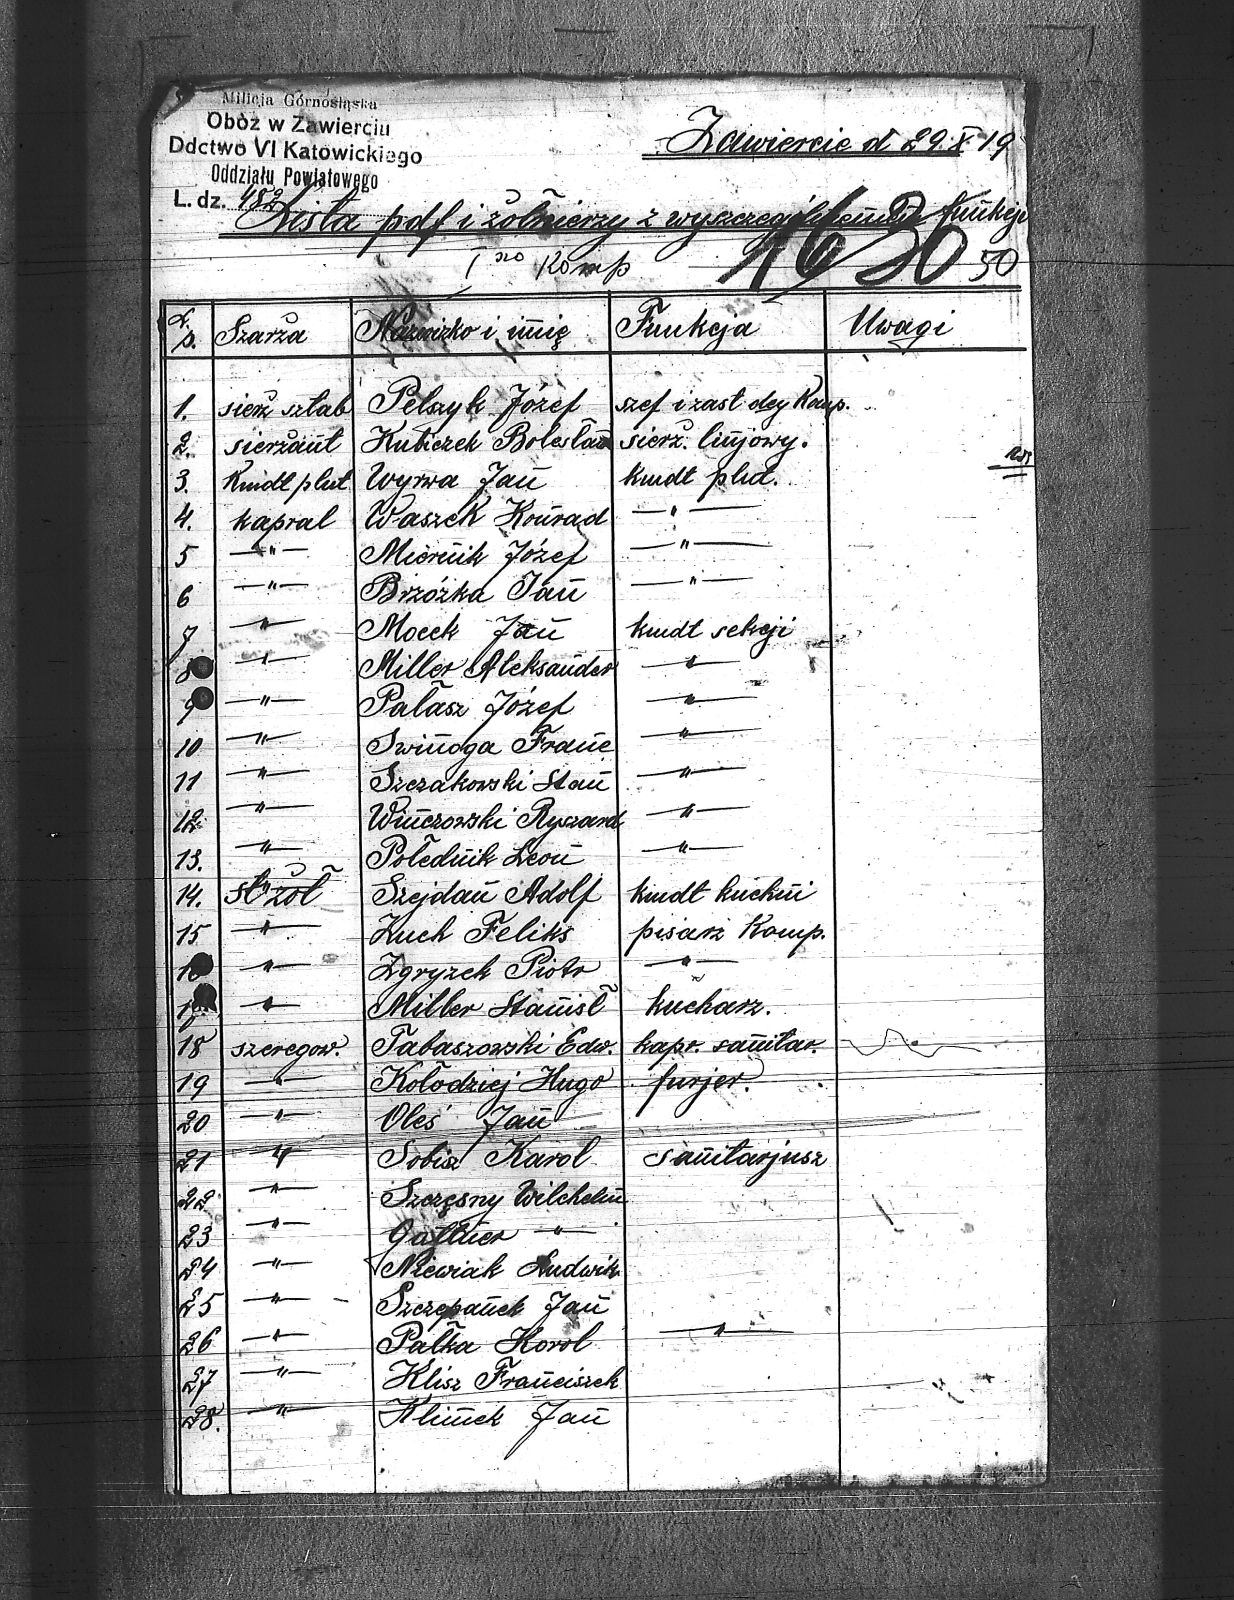 Milicja Górnośląska
Obóz w Zawierciu
Ddctwo VI Katowickiego
Oddziału Powiatowego
L. dz. 482
Zawiercie d 29 X 19
Lista pdf i żołnierzy z wyszczególnieniem funkcji
I szo Komp
1630 50
L. p. Szarża Nazwizko i imię Funkcja Uwagi
1. sierż sztab Pelszyk Józef szef i zast dcy Komp.
2. sierżant Kubiczek Bolesław sierż. linjowy.
3. Kmdt plut Wyrwa Jan kmdt plut.
4. kapral Waszek Konrad —"—
5 —"— Miernik Józef —"—
6 —"— Brzózka Jan —"—
7 —"— Mocek Jan kmdt sekcji
8 —"— Miller Aleksander —"—
9 —"— Pałasz Józef —"—
10 —"— Swinoga Franc —"—
11 —"— Szczakowski Stan —"—
12 —"— Winczowski Ryszard —"—
13. —"— Polednik Leon —"—
14. st żoł Szejdan Adolf kmdt kuchni
15 —"— Kuch Feliks pisarz Komp.
16 —"— Zgryzek Piotr —"—
17 —"— Miller Stanisł kucharz.
18 szeregow. Tabaszowski Edw. kapr. sanitar.
19 —"— Kołodziej Hugo furjer.
20 —"— Oleś Jan
21 —"— Sobisz Karol sanitarjusz
22 —"— Szczęsny Wilchelm
23 —"— —"—
24 —"— Niewiak Ludwik
25 —"— Szczepanek Jan
26 —"— Pałka Korol —"—
27 —"— Klisz Franciszek
28. —"— Klimek Jan